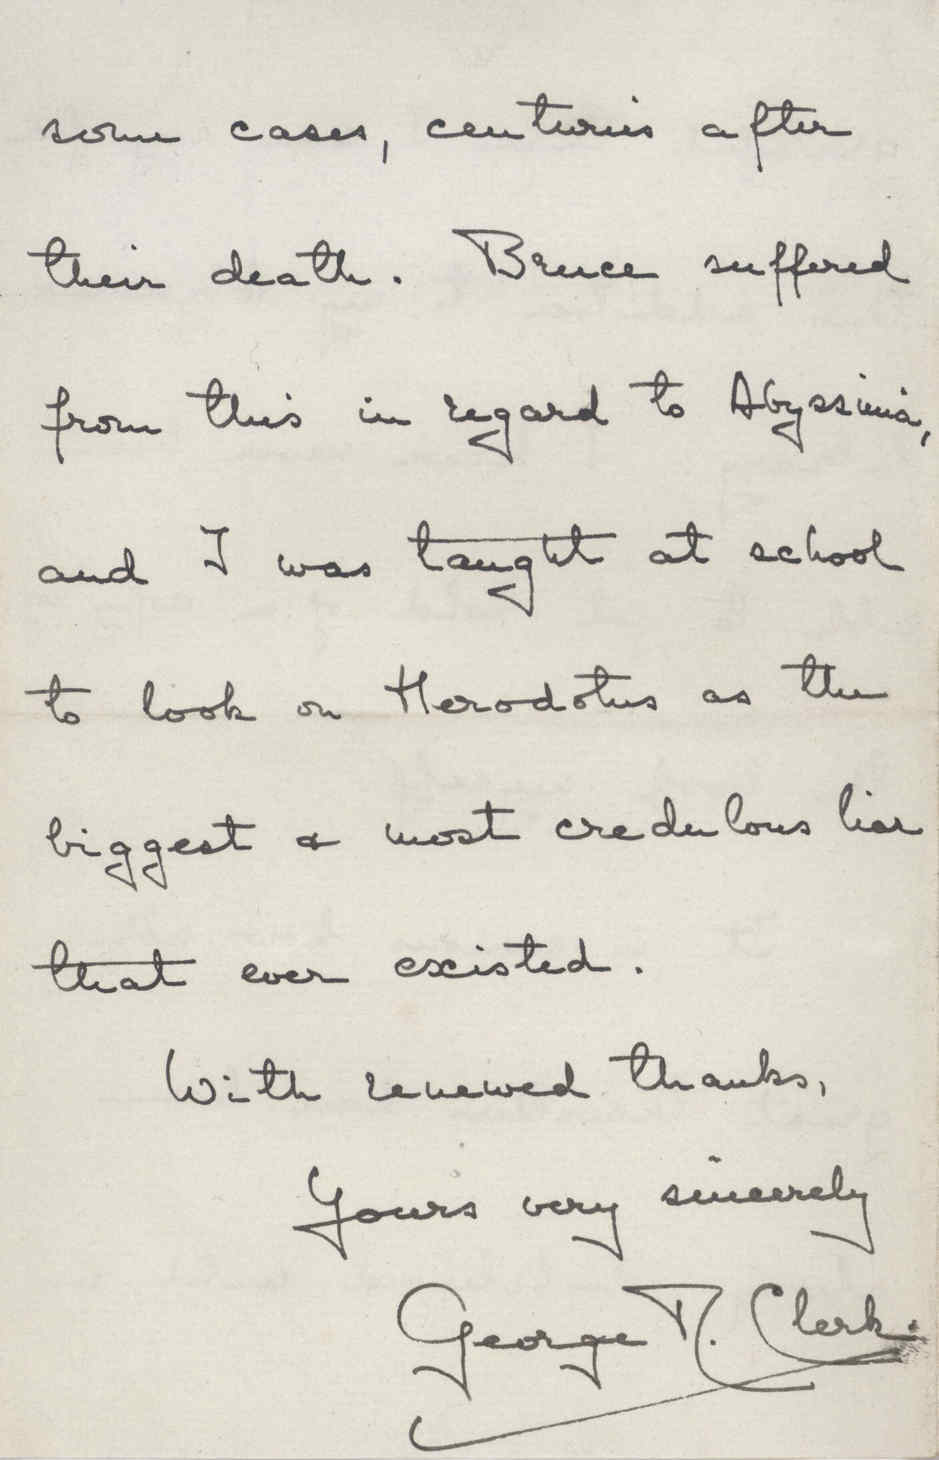 some cases, centuries after
their death. Bruce suffered
from this in regard to Abyssinia,
and I was taught at school
to look on Herodotus as the
biggest & most credulous liar
that ever existed.
With renewed thanks,
Yours very sincerely
George R. Clerk.